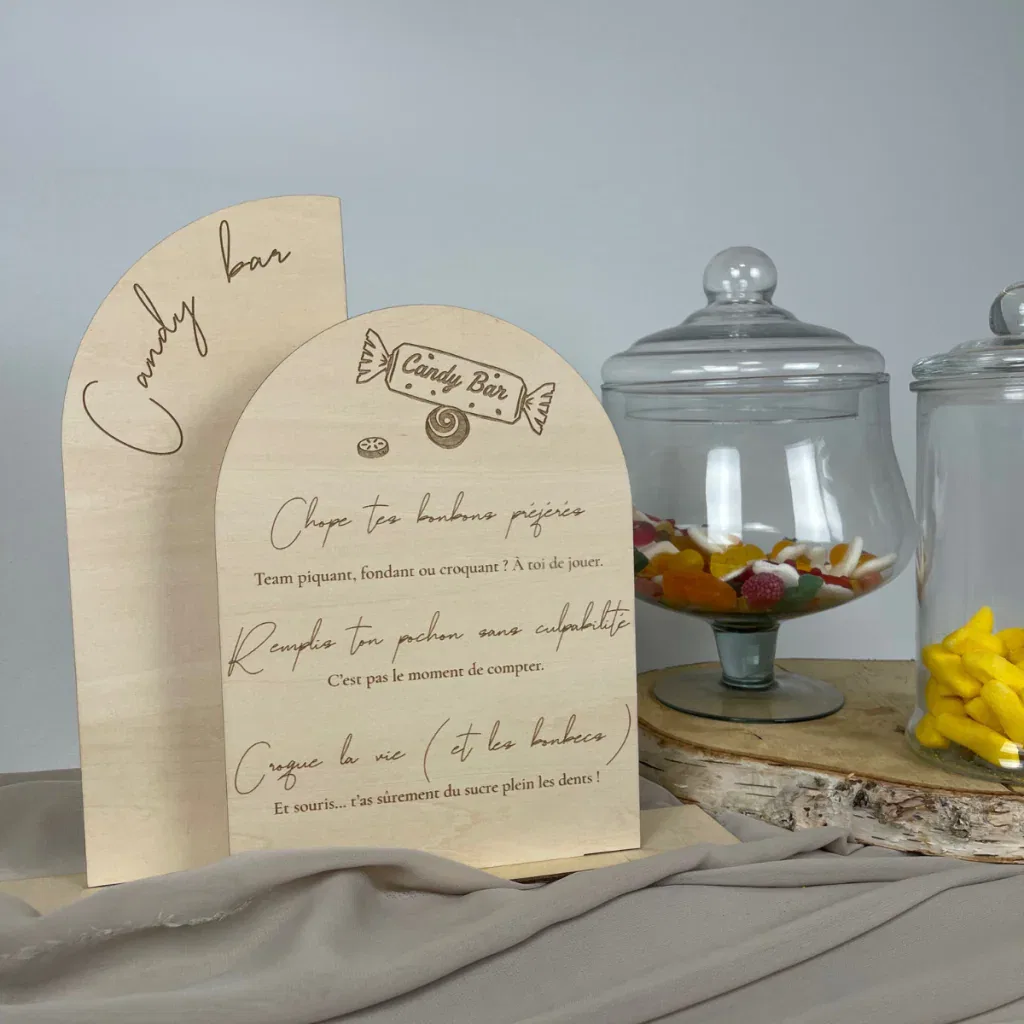 Candy bar
Candy Bar
Chope tes bonbons préférés
Team piquant, fondant ou croquant ? À toi de jouer.
Remplis ton pochon sans culpabilité
C'est pas le moment de compter.
Croque la vie (et les bonbecs)
Et souris... t'as sûrement du sucre plein les dents !